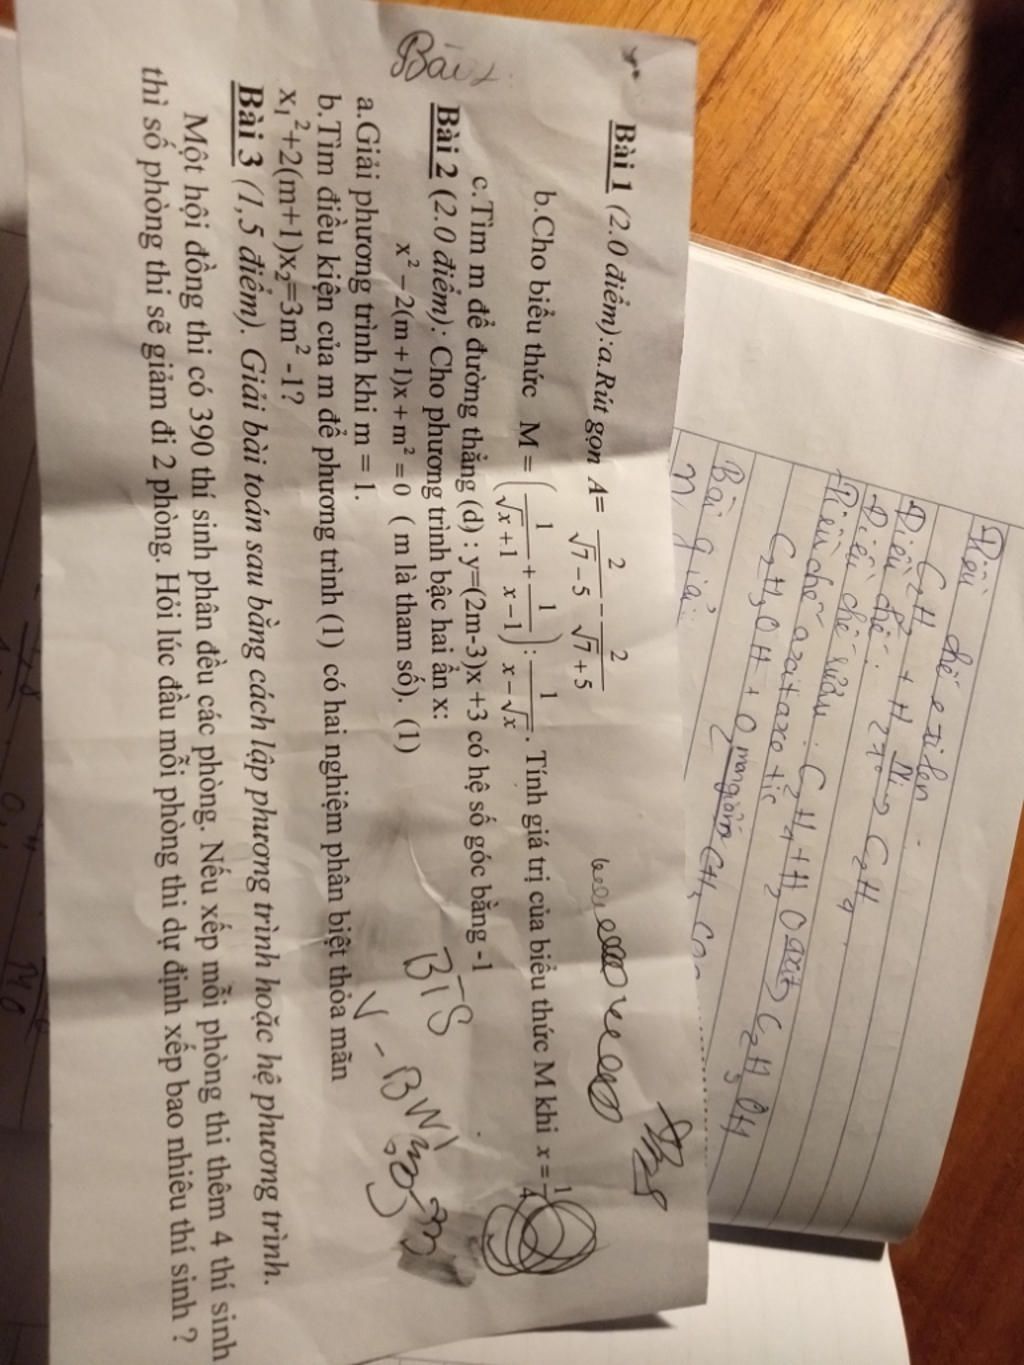 Bài 1 (2.0 điểm):a.Rút gọn A= 2/(√7−5) − 2/(√7+5)
b.Cho biểu thức M = (1/(√x+1) + 1/(x−1)) : 1/(x−√x). Tính giá trị của biểu thức M khi x = 1/4
c.Tìm m để đường thẳng (d) : y=(2m-3)x +3 có hệ số góc bằng -1
Bài 2
Bài 2 (2.0 điểm): Cho phương trình bậc hai ẩn x:
x² – 2(m+1)x + m² = 0 ( m là tham số). (1)
a.Giải phương trình khi m = 1.
b.Tìm điều kiện của m để phương trình (1) có hai nghiệm phân biệt thỏa mãn
x₁²+2(m+1)x₂=3m² -1?
Bài 3 (1,5 điểm). Giải bài toán sau bằng cách lập phương trình hoặc hệ phương trình.
Một hội đồng thi có 390 thí sinh phân đều các phòng. Nếu xếp mỗi phòng thi thêm 4 thí sinh
thì số phòng thi sẽ giảm đi 2 phòng. Hỏi lúc đầu mỗi phòng thi dự định xếp bao nhiêu thí sinh ?
BTS
V - BWI
Điều chế etilen
C₂H₂ + H₂ Ni t° → C₂H₄
Điều chế
Điều chế rượu : C₂H₄ + H₂O axit → C₂H₅OH
Điều chế axit axetic
C₂H₅OH + O₂ men giấm CH₃
Bài giải
n